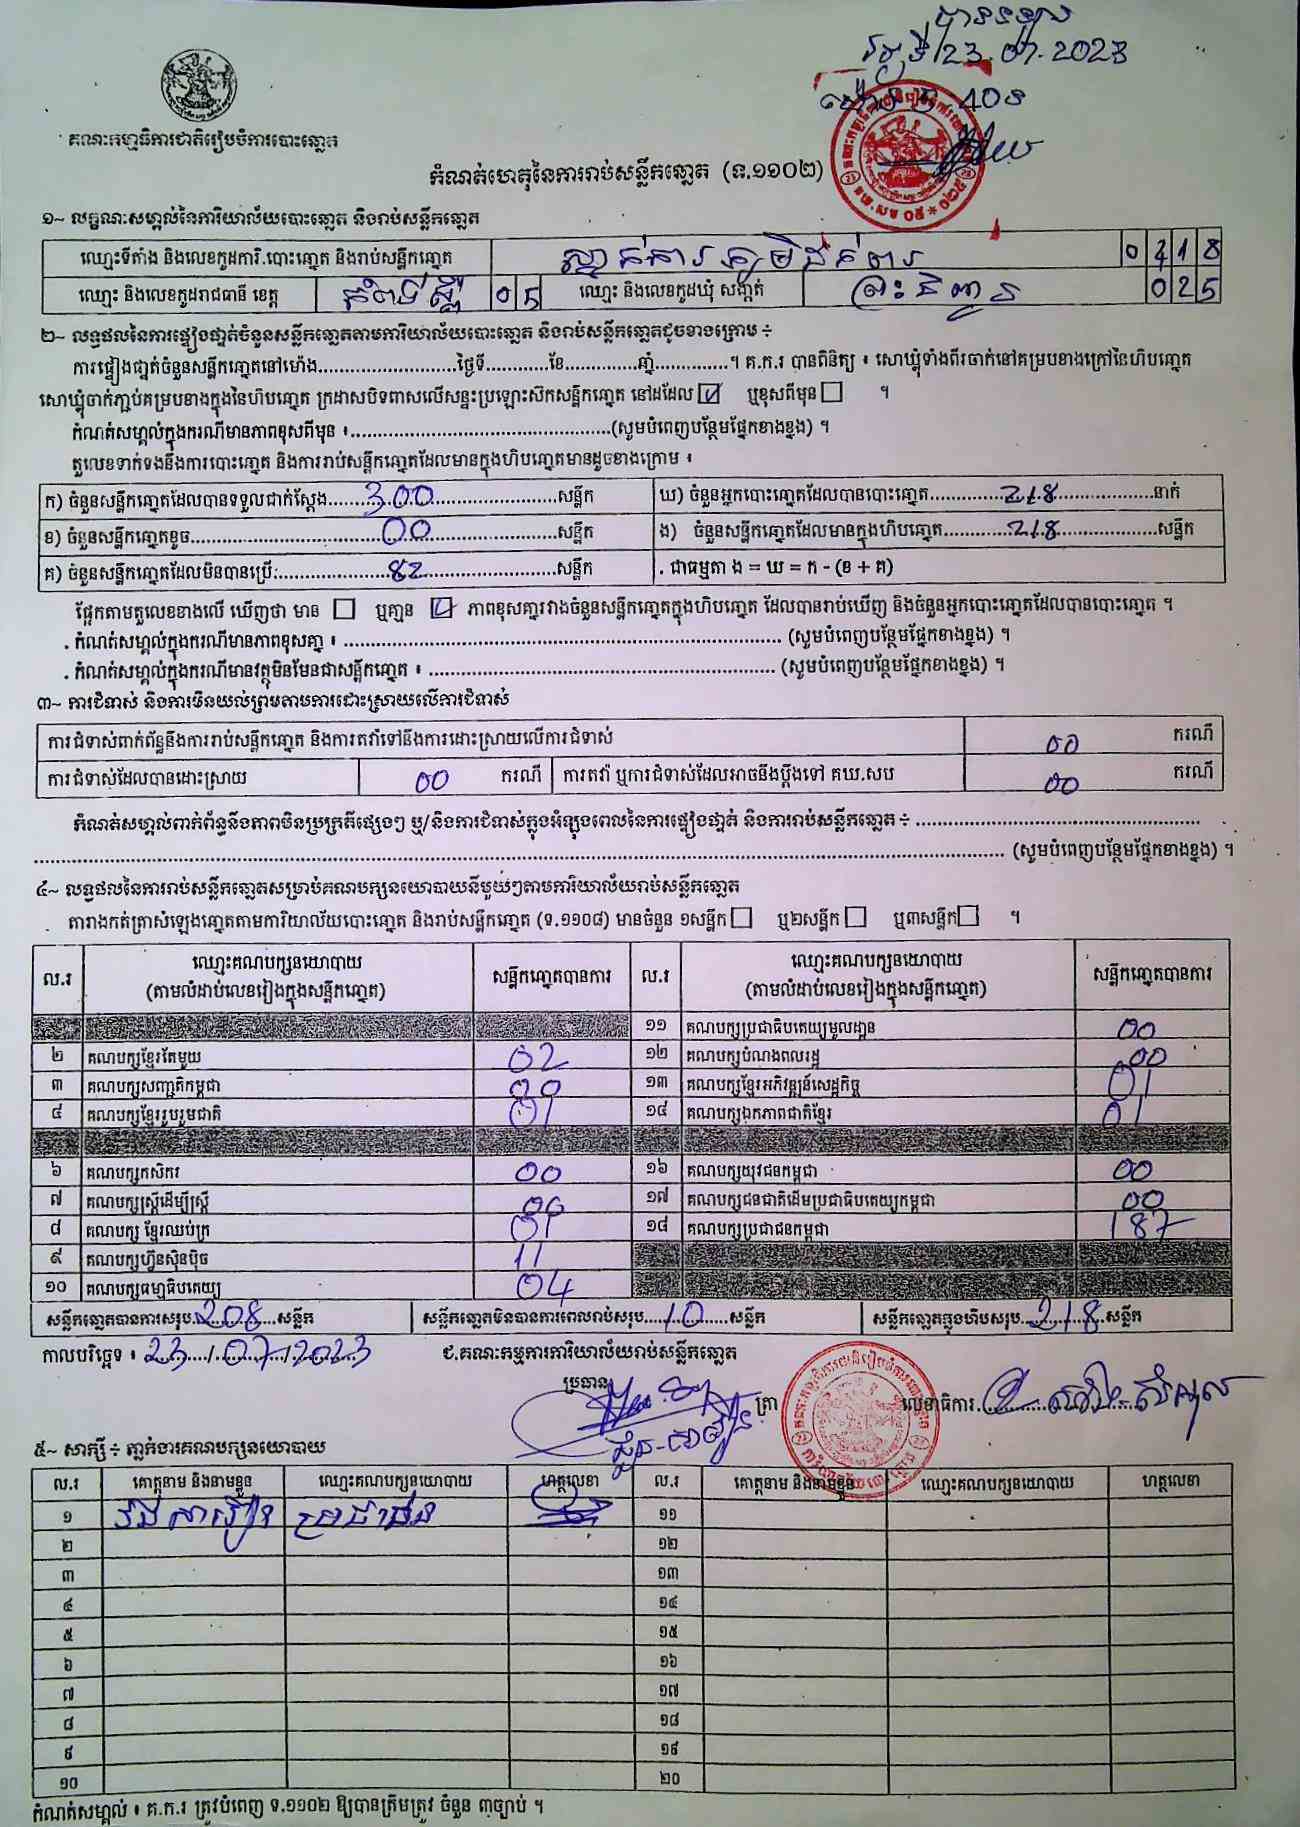 បានទទួល
ថ្ងៃទី 23.07.2023
គណៈកម្មាធិការជាតិរៀបចំការបោះឆ្នោត
កំណត់ហេតុនៃការរាប់សន្លឹកឆ្នោត (ទ.១១០២)
១~ លក្ខណៈសម្គាល់នៃការិយាល័យបោះឆ្នោត និងរាប់សន្លឹកឆ្នោត
ឈ្មោះទីតាំង និងលេខកូដការិ.បោះឆ្នោត និងរាប់សន្លឹកឆ្នោត 0218
ឈ្មោះ និងលេខកូដរាជធានី ខេត្ត កំពង់ស្ពឺ 05 ឈ្មោះ និងលេខកូដឃុំ សង្កាត់ ព្រះនិពាន 025
២~ លទ្ធផលនៃការផ្ទៀងផ្ទាត់ចំនួនសន្លឹកឆ្នោតតាមការិយាល័យបោះឆ្នោត និងរាប់សន្លឹកឆ្នោតដូចខាងក្រោម ÷
ការផ្ទៀងផ្ទាត់ចំនួនសន្លឹកឆ្នោតនៅម៉ោង..........ថ្ងៃទី..........ខែ..........ឆ្នាំ..........។ គ.ក.រ បានពិនិត្យ ៖ សោឃ្លុំទាំងពីរចាក់នៅគម្របខាងក្រៅនៃហិបឆ្នោត
សោឃ្លុំចាក់ភ្ជាប់គម្របខាងក្នុងនៃហិបឆ្នោត ក្រដាសបិទពាសលើសន្ទះប្រឡោះស៊កសន្លឹកឆ្នោត នៅដដែល ☑ ឬខុសពីមុន ☐ ។
កំណត់សម្គាល់ក្នុងករណីមានភាពខុសពីមុន ៖..........(សូមបំពេញបន្ថែមផ្នែកខាងខ្នង) ។
តួលេខទាក់ទងនឹងការបោះឆ្នោត និងការរាប់សន្លឹកឆ្នោតដែលមានក្នុងហិបឆ្នោតមានដូចខាងក្រោម ៖
ក) ចំនួនសន្លឹកឆ្នោតដែលបានទទួលជាក់ស្តែង...300...សន្លឹក ឃ) ចំនួនអ្នកបោះឆ្នោតដែលបានបោះឆ្នោត...218...នាក់
ខ) ចំនួនសន្លឹកឆ្នោតខូច...00...សន្លឹក ង) ចំនួនសន្លឹកឆ្នោតដែលមានក្នុងហិបឆ្នោត...218...សន្លឹក
គ) ចំនួនសន្លឹកឆ្នោតដែលមិនបានប្រើ:...82...សន្លឹក . ជាធម្មតា ង = ឃ = ក - (ខ + គ)
ផ្អែកតាមតួលេខខាងលើ ឃើញថា មាន ☐ ឬគ្មាន ☑ ភាពខុសគ្នារវាងចំនួនសន្លឹកឆ្នោតក្នុងហិបឆ្នោត ដែលបានរាប់ឃើញ និងចំនួនអ្នកបោះឆ្នោតដែលបានបោះឆ្នោត ។
. កំណត់សម្គាល់ក្នុងករណីមានភាពខុសគ្នា ៖ .......... (សូមបំពេញបន្ថែមផ្នែកខាងខ្នង) ។
. កំណត់សម្គាល់ក្នុងករណីមានវត្ថុមិនមែនជាសន្លឹកឆ្នោត ៖ .......... (សូមបំពេញបន្ថែមផ្នែកខាងខ្នង) ។
៣~ ការជំទាស់ និងការមិនយល់ព្រមតាមការដោះស្រាយលើការជំទាស់
ការជំទាស់ពាក់ព័ន្ធនឹងការរាប់សន្លឹកឆ្នោត និងការតវ៉ាទៅនឹងការដោះស្រាយលើការជំទាស់ 00 ករណី
ការជំទាស់ដែលបានដោះស្រាយ 00 ករណី ការតវ៉ា ឬការជំទាស់ដែលអាចនឹងប្តឹងទៅ គឃ.សប 00 ករណី
កំណត់សម្គាល់ពាក់ព័ន្ធនឹងភាពមិនប្រក្រតីផ្សេងៗ ឬ/និងការជំទាស់ក្នុងអំឡុងពេលនៃការផ្ទៀងផ្ទាត់ និងការរាប់សន្លឹកឆ្នោត ÷ ..........
.......... (សូមបំពេញបន្ថែមផ្នែកខាងខ្នង) ។
៤~ លទ្ធផលនៃការរាប់សន្លឹកឆ្នោតសម្រាប់គណបក្សនយោបាយនីមួយៗតាមការិយាល័យរាប់សន្លឹកឆ្នោត
តារាងកត់ត្រាសំឡេងឆ្នោតតាមការិយាល័យបោះឆ្នោត និងរាប់សន្លឹកឆ្នោត (ទ.១១០៨) មានចំនួន ១សន្លឹក ☐ ឬ២សន្លឹក ☐ ឬ៣សន្លឹក ☐ ។
ល.រ ឈ្មោះគណបក្សនយោបាយ (តាមលំដាប់លេខរៀងក្នុងសន្លឹកឆ្នោត) សន្លឹកឆ្នោតបានការ ល.រ ឈ្មោះគណបក្សនយោបាយ (តាមលំដាប់លេខរៀងក្នុងសន្លឹកឆ្នោត) សន្លឹកឆ្នោតបានការ
១១ គណបក្សប្រជាធិបតេយ្យមូលដ្ឋាន 00
២ គណបក្សខ្មែរតែមួយ 02 ១២ គណបក្សបំណងពលរដ្ឋ 00
៣ គណបក្សសញ្ជាតិកម្ពុជា 00 ១៣ គណបក្សខ្មែរអភិវឌ្ឍន៍សេដ្ឋកិច្ច 01
៤ គណបក្សខ្មែររួបរួមជាតិ 01 ១៤ គណបក្សឯកភាពជាតិខ្មែរ 01
៦ គណបក្សកសិករ 00 ១៦ គណបក្សយុវជនកម្ពុជា 00
៧ គណបក្សស្រ្តីដើម្បីស្រ្តី 00 ១៧ គណបក្សជនជាតិដើមប្រជាធិបតេយ្យកម្ពុជា 00
៨ គណបក្ស ខ្មែរឈប់ក្រ 01 ១៨ គណបក្សប្រជាជនកម្ពុជា 187
៩ គណបក្សហ៊្វុនស៊ិនប៉ិច 11
១០ គណបក្សធម្មាធិបតេយ្យ 04
សន្លឹកឆ្នោតបានការសរុប...208...សន្លឹក សន្លឹកឆ្នោតមិនបានការពេលរាប់សរុប...10...សន្លឹក សន្លឹកឆ្នោតក្នុងហិបសរុប...218...សន្លឹក
កាលបរិច្ឆេទ ៖ 23/07/2023 ជ.គណៈកម្មការការិយាល័យរាប់សន្លឹកឆ្នោត
ប្រធាន ត្រា លេខាធិការ
៥~ សាក្សី ÷ ភ្នាក់ងារគណបក្សនយោបាយ
ល.រ គោត្តនាម និងនាមខ្លួន ឈ្មោះគណបក្សនយោបាយ ហត្ថលេខា ល.រ គោត្តនាម និងនាមខ្លួន ឈ្មោះគណបក្សនយោបាយ ហត្ថលេខា
១ ប្រជាជន ១១
២ ១២
៣ ១៣
៤ ១៤
៥ ១៥
៦ ១៦
៧ ១៧
៨ ១៨
៩ ១៩
១០ ២០
កំណត់សម្គាល់ ៖ គ.ក.រ ត្រូវបំពេញ ទ.១១០២ ឱ្យបានត្រឹមត្រូវ ចំនួន ៣ច្បាប់ ។